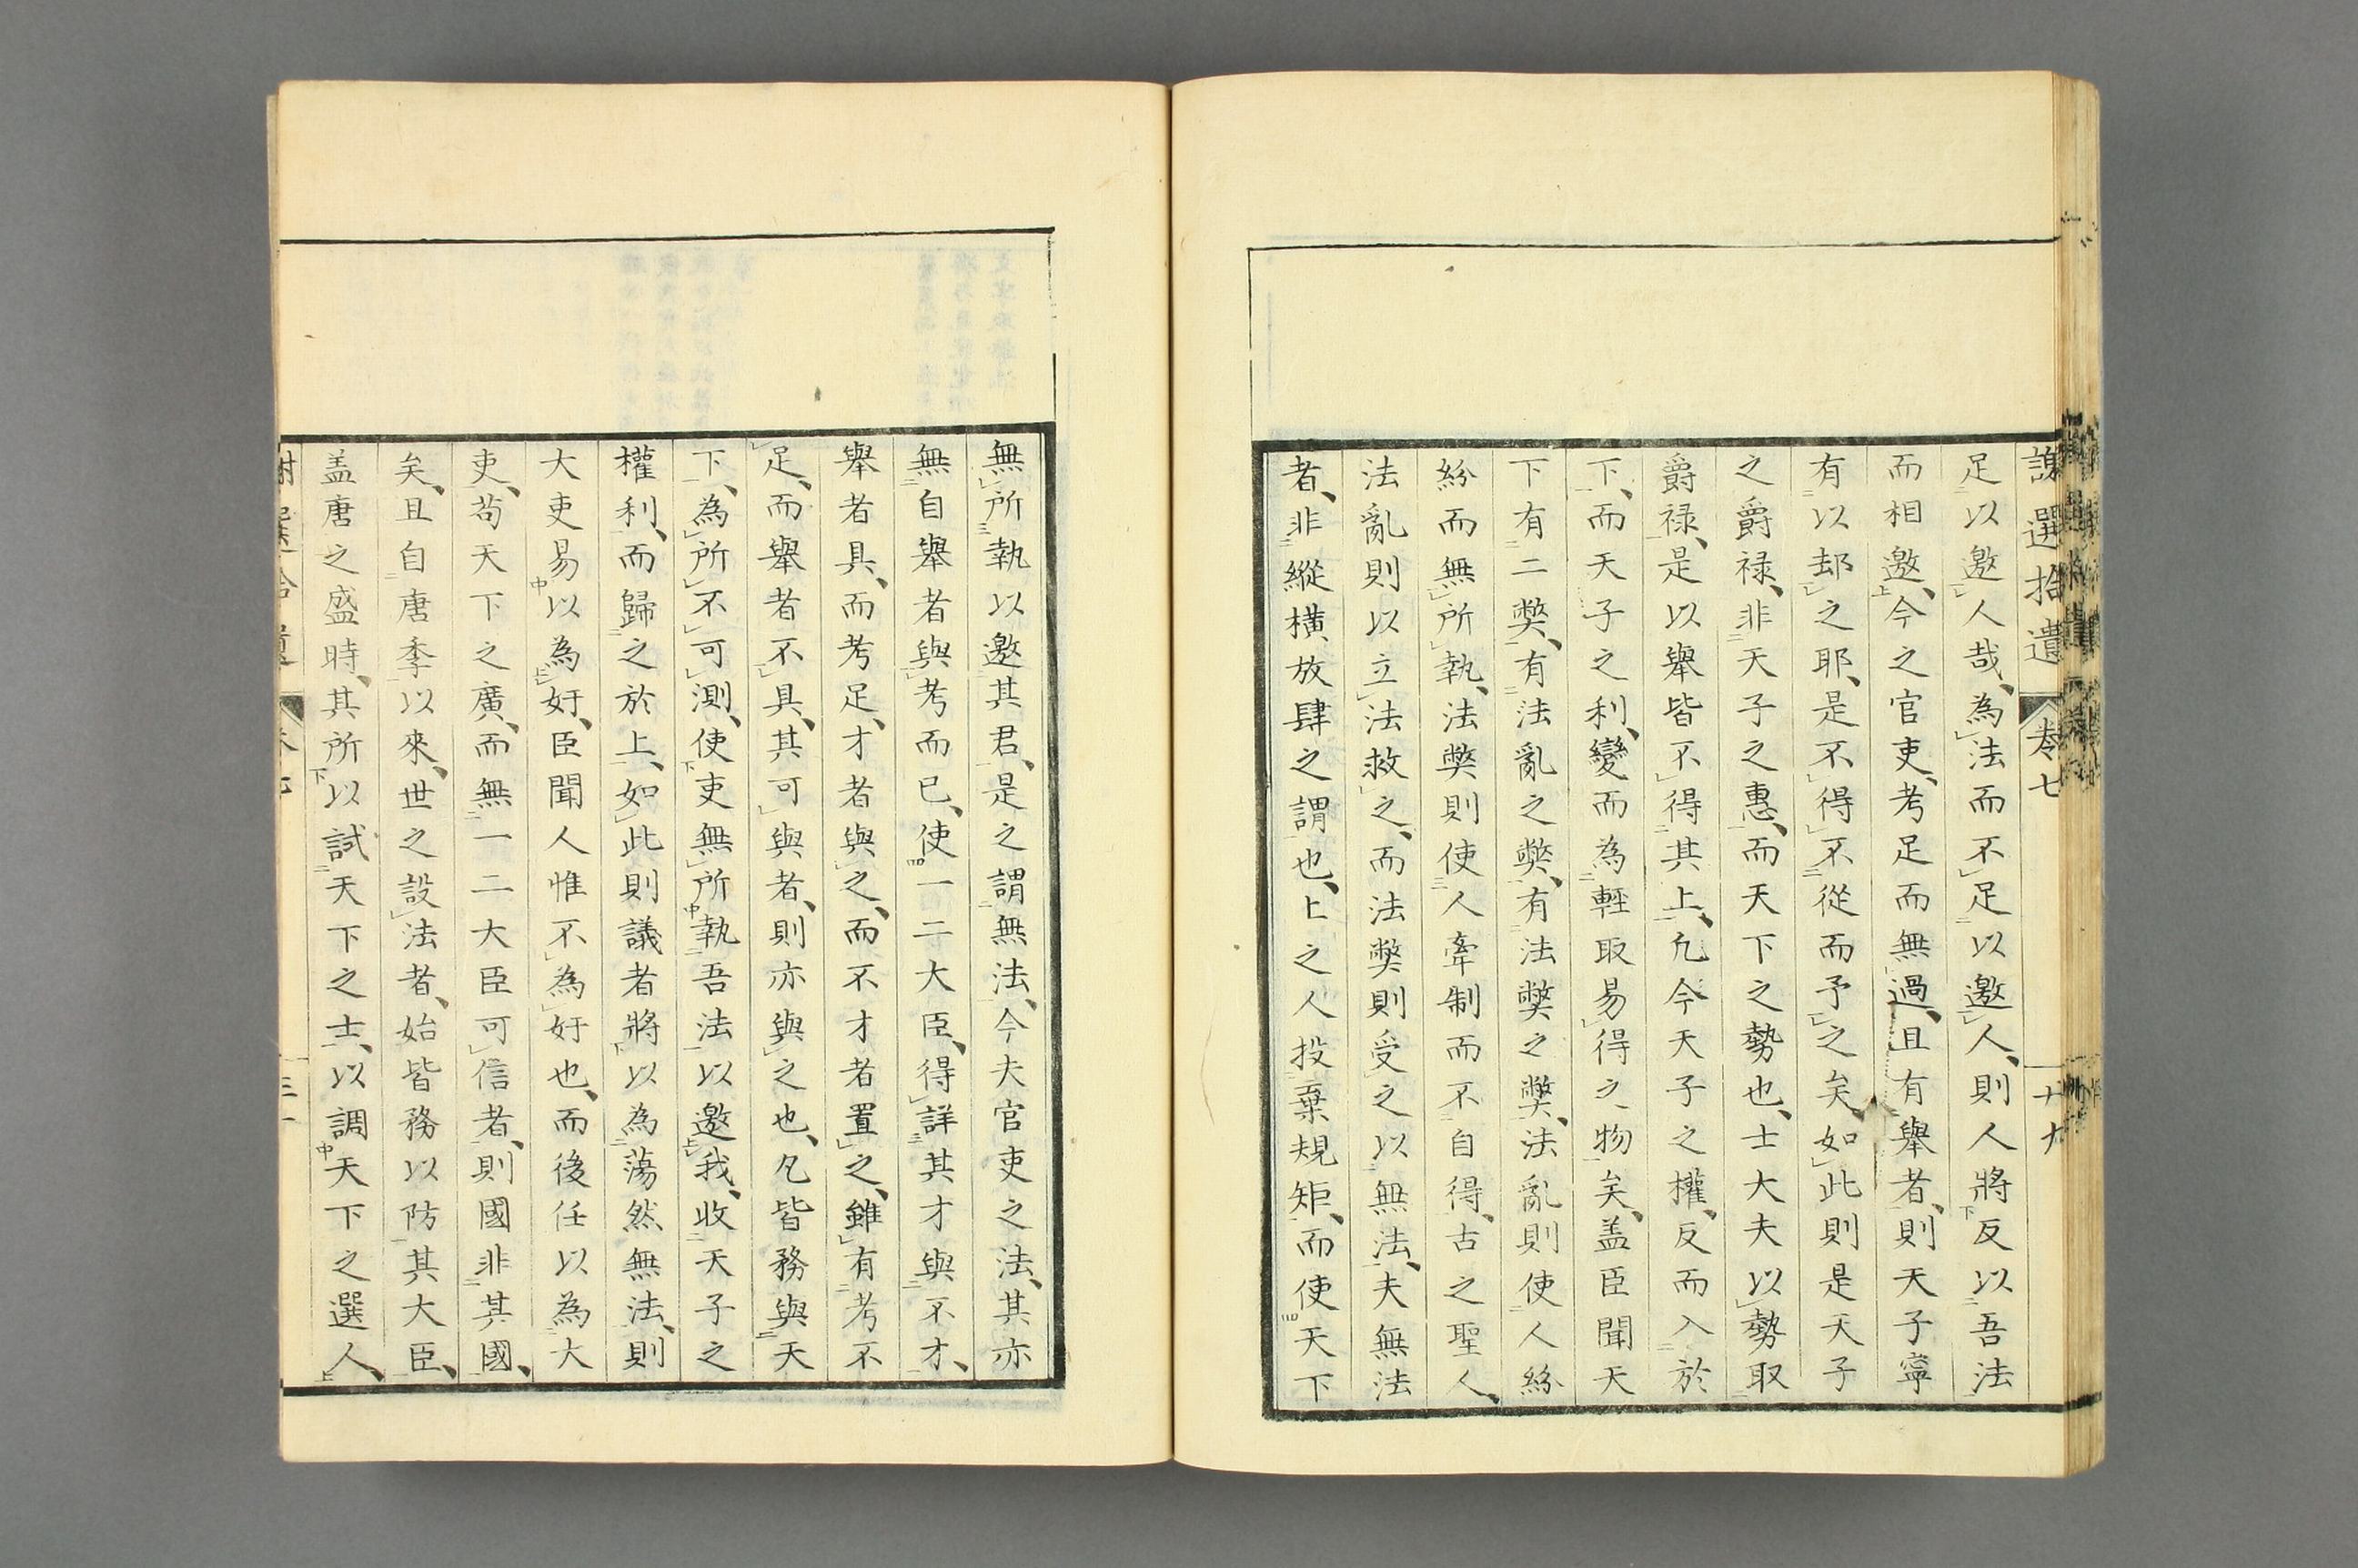 謝選拾遺 卷七 十九
足以邀人哉、為法而不足以邀人、則人將反以吾法
而相邀、今之官吏、考足而無過、且有舉者、則天子寧
有以却之耶、是不得不從而予之矣、如此則是天子
之爵祿、非天子之惠、而天下之勢也、士大夫以勢取
爵祿、是以舉皆不得其上、凢今天子之權、反而入於
下、而天子之利、變而為輕取易得之物矣、盖臣聞天
下有二獘、有法亂之獘、有法獘之獘、法亂則使人紛
紛而無所執、法獘則使人牽制而不自得、古之聖人、
法亂則以立法救之、而法獘則受之以無法、夫無法
者、非縱橫放肆之謂也、上之人投棄規矩、而使天下
無所執以邀其君、是之謂無法、今夫官吏之法、其亦
無自舉者與考而已、使一二大臣、得詳其才與不才、
舉者具、而考足、才者與之、而不才者置之、雖有考不
足、而舉者不具、其可與者、則亦與之也、凢皆務與天
下、為所不可測、使吏無所執吾法以邀我、收天子之
權利、而歸之於上、如此則議者將以為蕩然無法、則
大吏易以為奸、臣聞人惟不為奸也、而後任以為大
吏、苟天下之廣、而無一二大臣可信者、則國非其國、
矣、且自唐季以來、世之設法者、始皆務以防其大臣、
盖唐之盛時、其所以試天下之士、以調天下之選人、